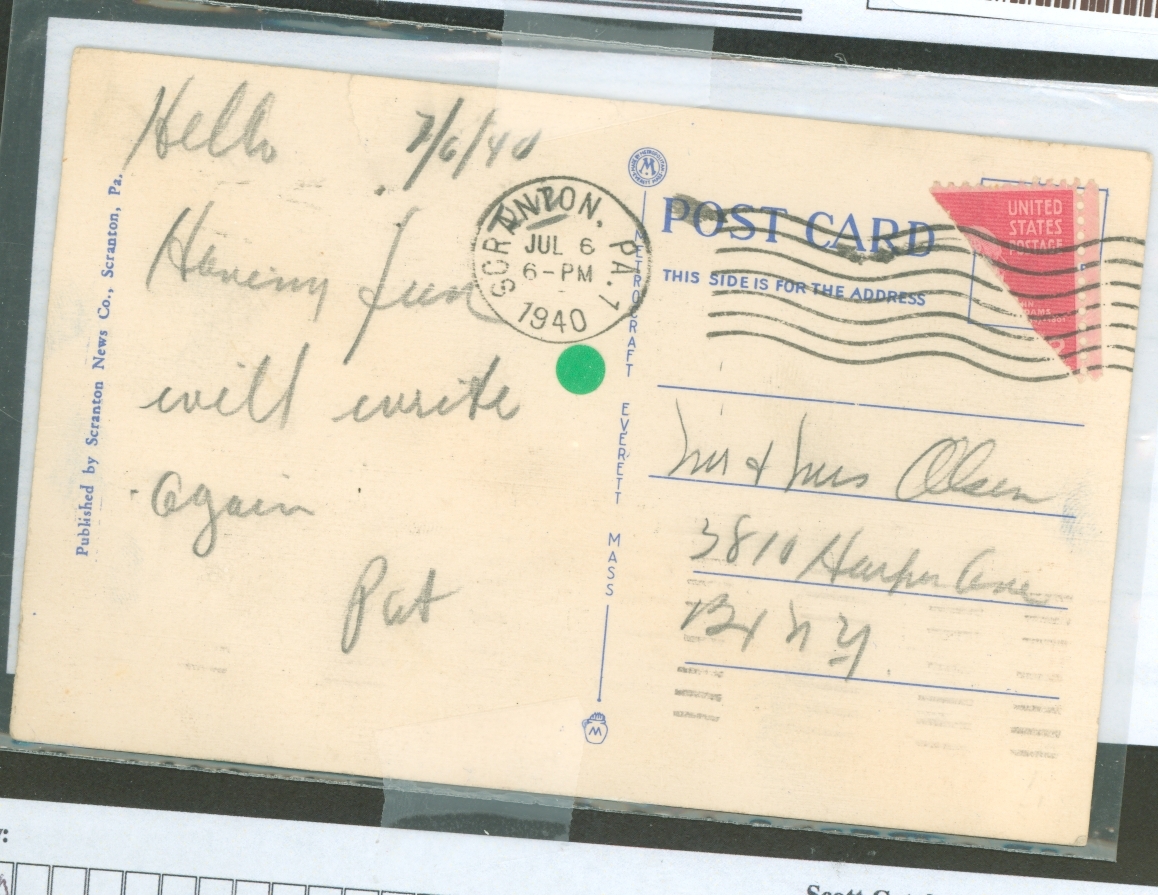 Hello 7/6/40
Having fun
will write
again
Pat
Published by Scranton News Co., Scranton, Pa.
SCRANTON, PA. 1
JUL 6
6-PM
1940
MADE BY METROPOLITAN
EVERETT MASS
M
METROCRAFT EVERETT MASS
W
POST CARD
THIS SIDE IS FOR THE ADDRESS
UNITED
STATES
POSTAGE
ADAMS
Mr & Mrs Olsen
3810 Harper Ave
Bx N Y
y: